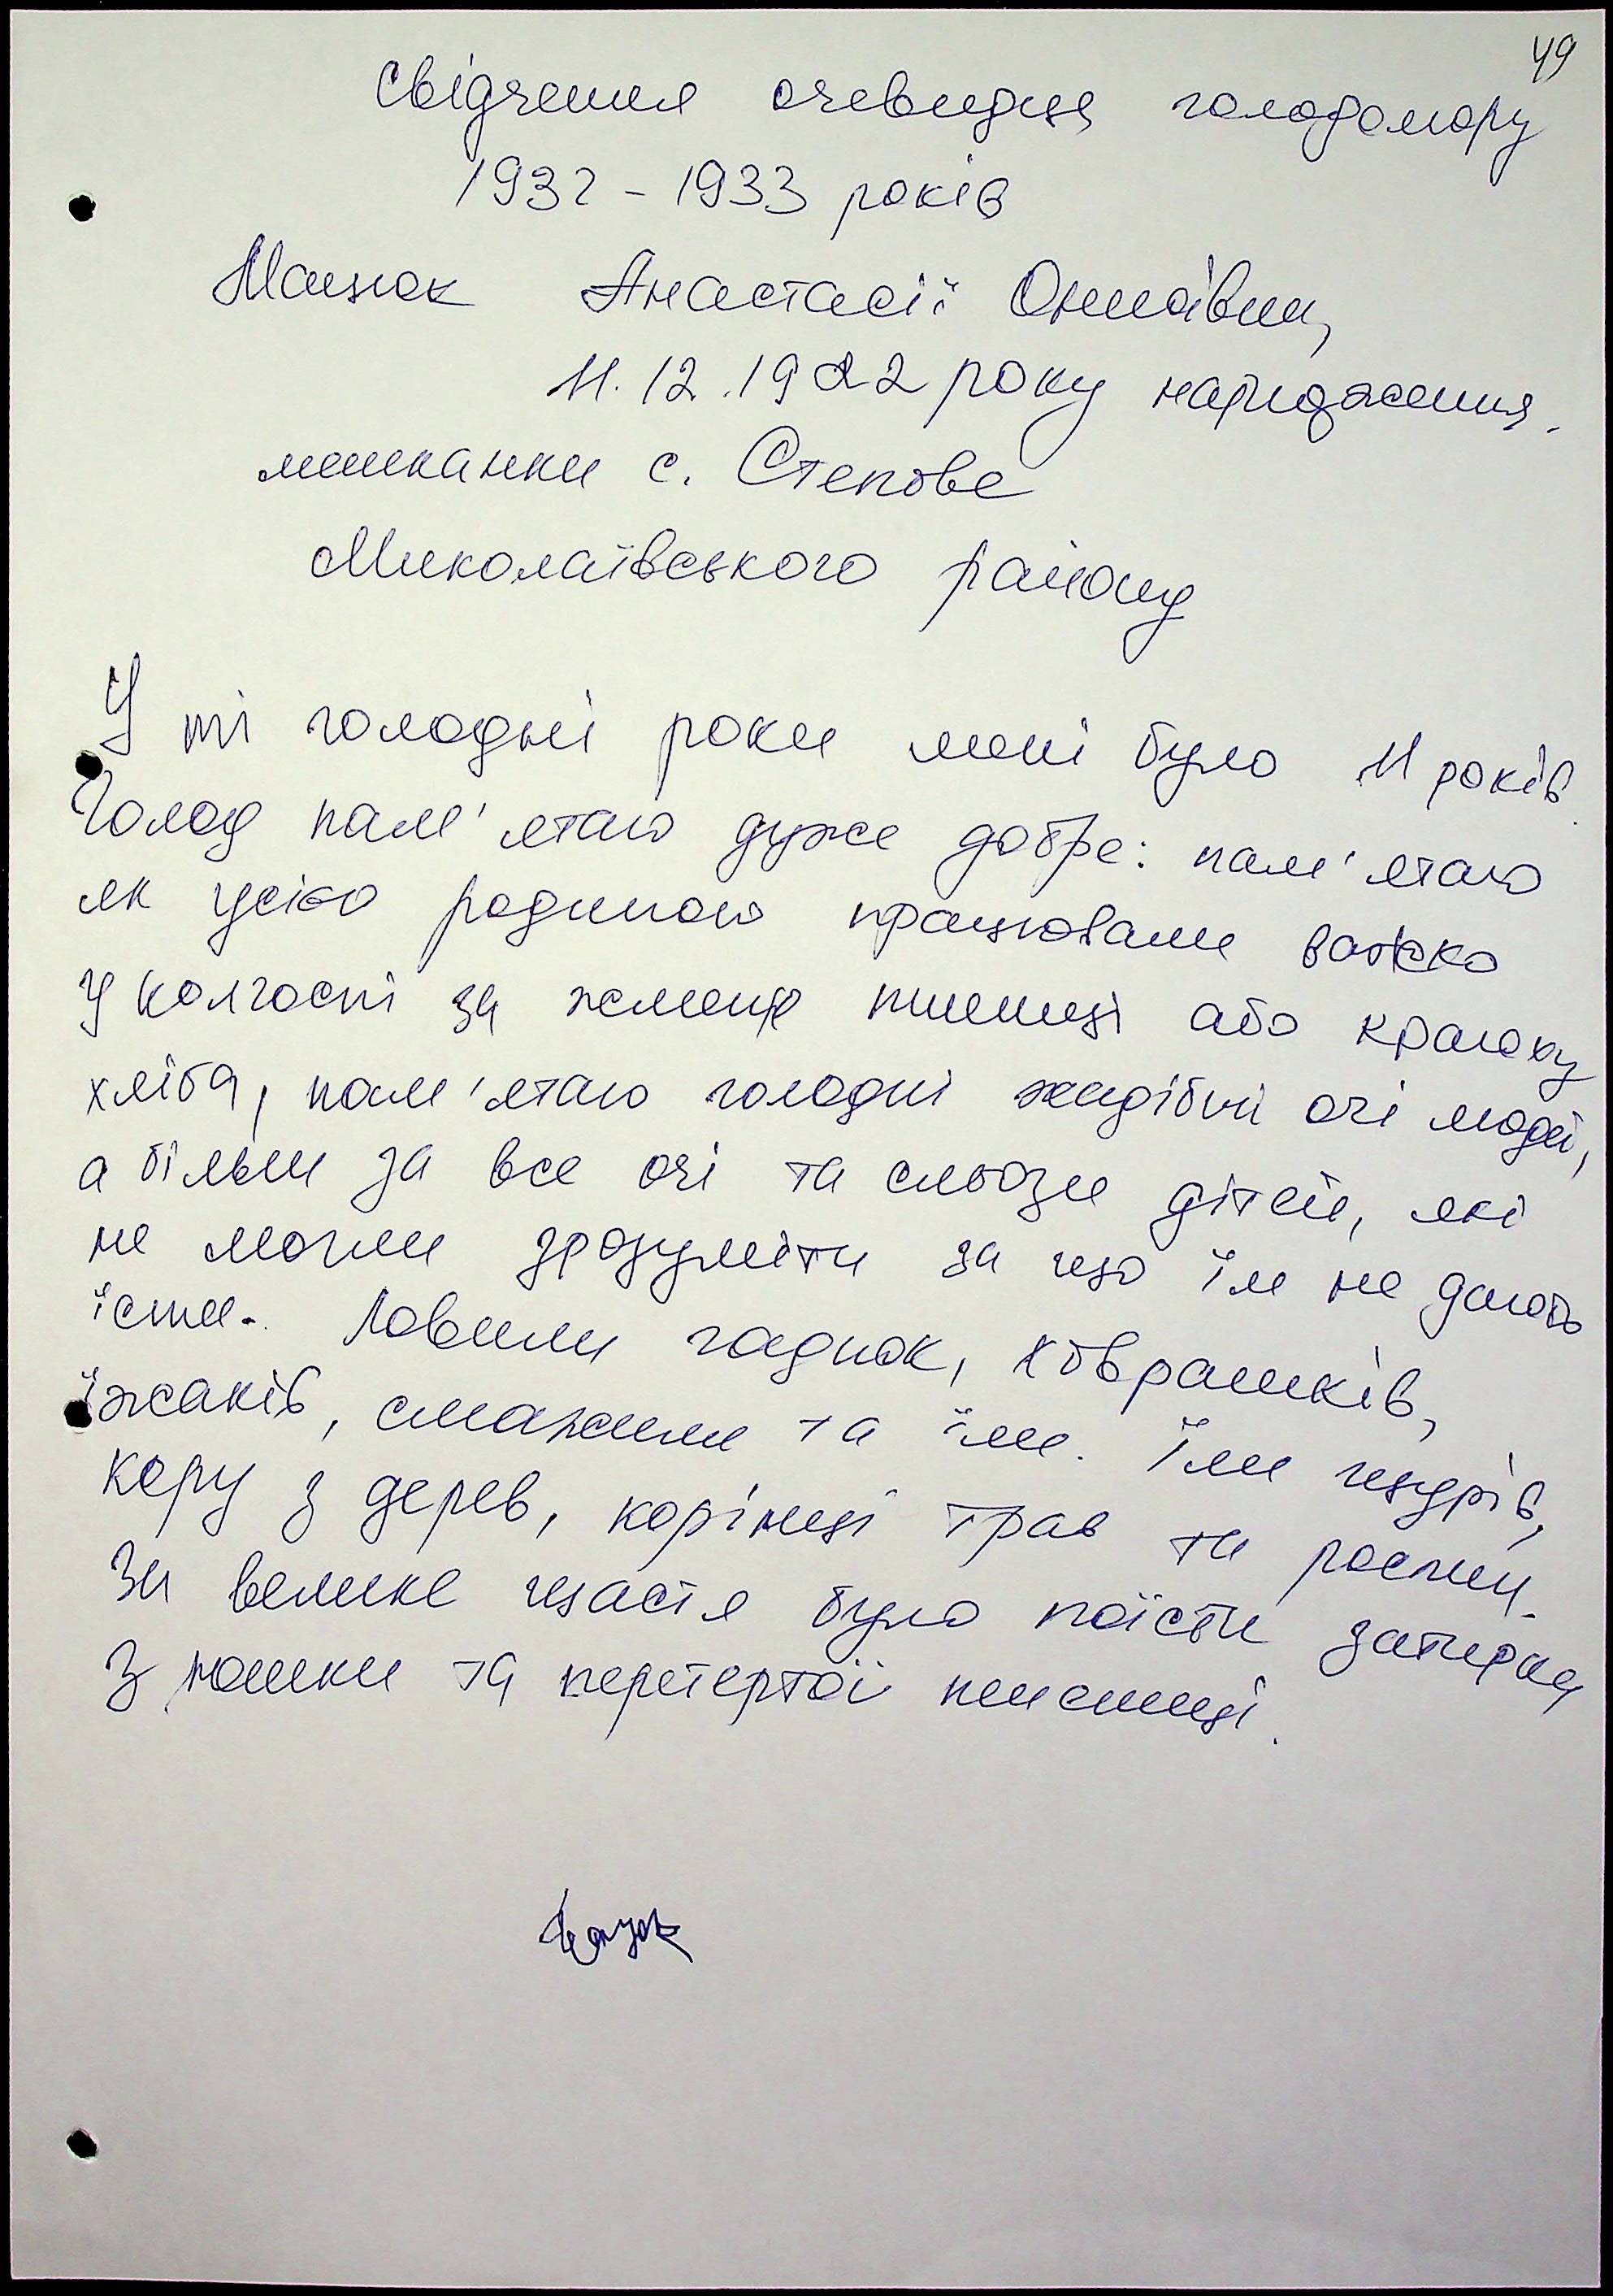 49
Свідчення очевидця голодомору
1932 - 1933 років
Мацюк Анастасії
11.12.1922 року народження.
мешканки с. Степове
Миколаївського району
У ті голодні роки мені було 11 років.
Голод пам'ятаю дуже добре: пам'ятаю
як усією родиною працювали важко
у колгоспі за жменю пшениці або краюху
хліба, пам'ятаю голодні жадібні очі людей,
а більш за все очі та сльози дітей, які
не могли зрозуміти за що їм не дають
їсти. Ловили гадюк, ховрашків,
їжаків, смажили та їли. Їли щурів,
кору з дерев, корінці трав та рослин.
За велике щастя було поїсти затирки
з юшки та перетертої пшениці.